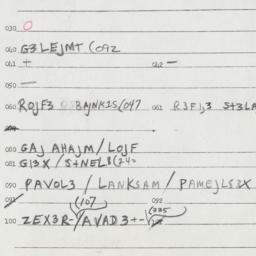 030 O
040 G3LEJMT (092
041 + 042 -
050 -
060 ROJF3 BAJNK1S/047 061 R3FJ,3 S+3LA
080 GAJ AHAJM/LOJF
081 G13X/S+NEL8(240
090 PAVOL3/LANKSAM/PAMEJLS3X
091 (107 092 (335
100 ZEX3R-/AVAD3+-